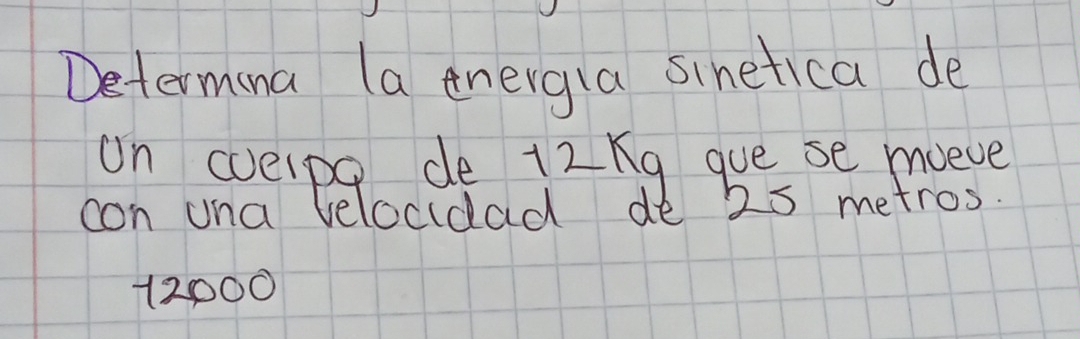 Determina la energia sinetica de
un cuerpo de 12Kg que se mueve
con una velocidad de 25 metros.
12000